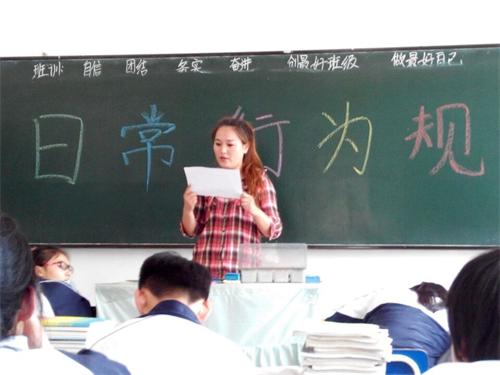 班训 自信 团结 务实 奋进 创最好班级 做最好自己
日常行为规